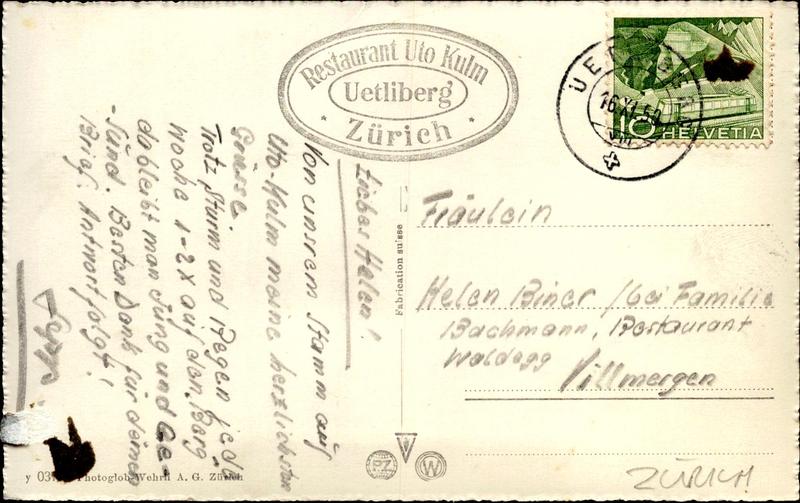 Restaurant Uto Kulm
Uetliberg
Zürich
HELVETIA
Liebes Helen!
Von unsrem Stamm auf
Uto-Kulm meine herzlichsten
Grüsse.
Trotz Sturm und Regen jede
Woche 1-2x auf den Berg
do bleibt man Jung und Ge-
-sund. Besten Dank für deinen
Brief. Antwort folgt!
Fabrication suisse
Fräulein
Helen Biner / bei Familie
Bachmann, Restaurant
Waldegg
Villmergen
PZ
W
Photoglob-Wehrli A. G. Zürich
ZÜRICH